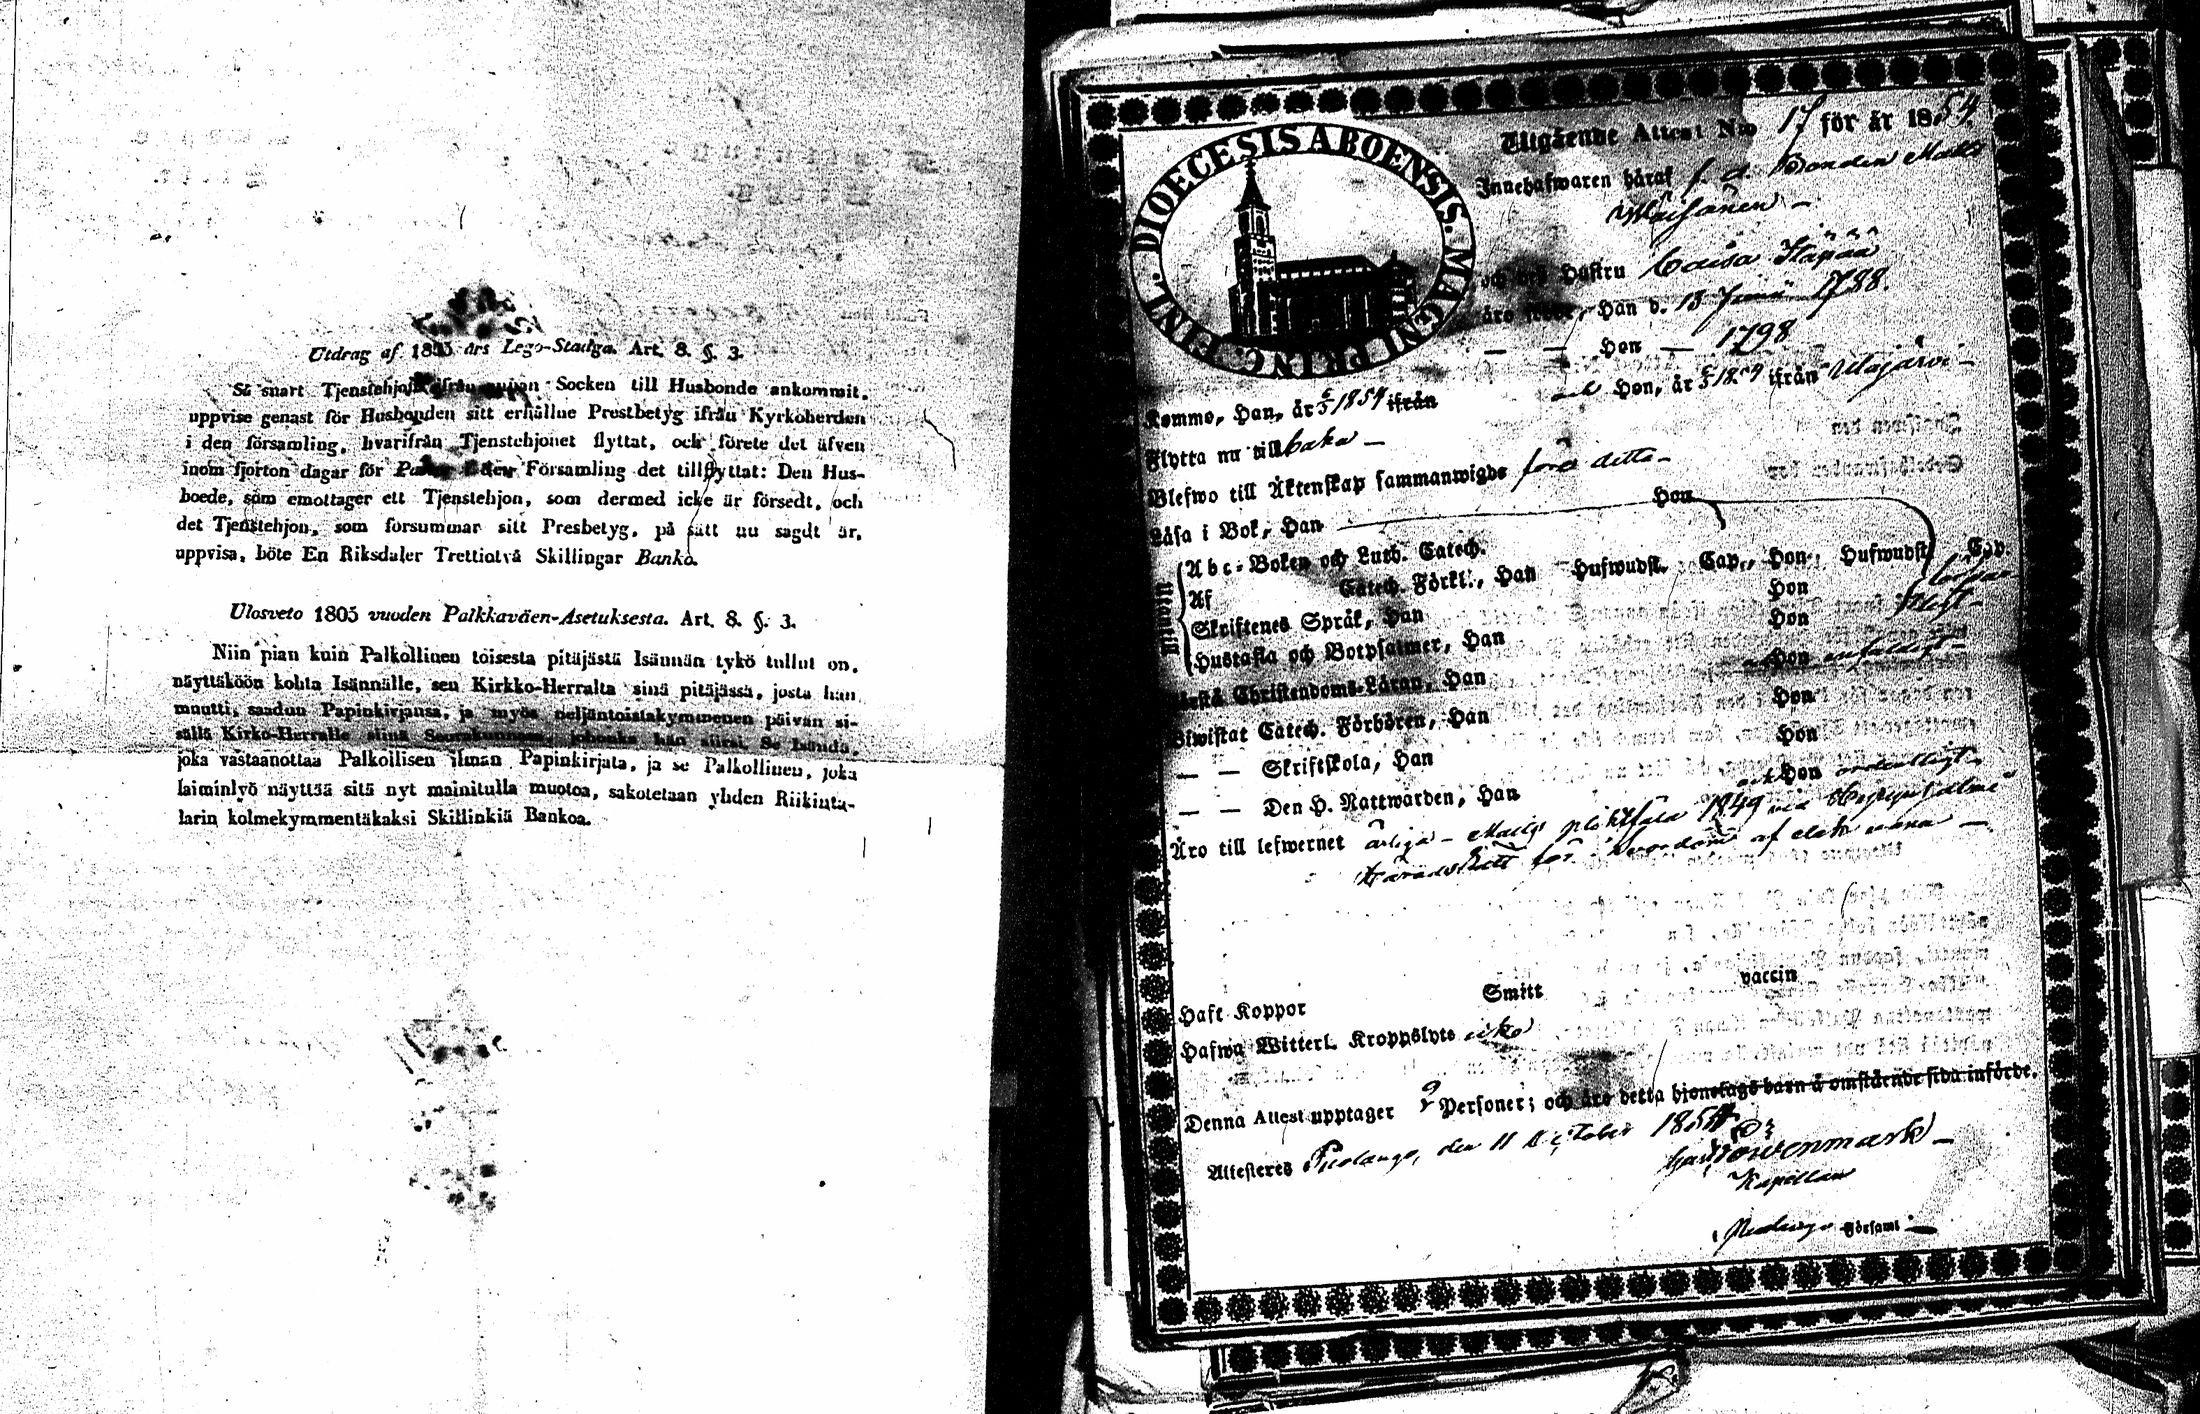 Utdrag af 1805 års Lego-Stadga. Art. 8. §. 3.
Så snart Tjenstehjon ifrån annan Socken till Husbonde ankommit,
uppvise genast för Husbonden sitt erhållne Prestbetyg ifrån Kyrkoherden
i den församling, hvarifrån Tjenstehjonet flyttat, och förete det äfven
inom fjorton dagar för Församling det tillflyttat: Den Hus-
boede, som emottager ett Tjenstehjon, som dermed icke är försedt, och
det Tjenstehjon, som försummar sitt Presbetyg, på sätt nu sagdt är,
uppvisa, böte En Riksdaler Trettiotvå Skillingar Banko.
Ulosveto 1805 vuoden Palkkaväen-Asetuksesta. Art. 8. §. 3.
Niin pian kuin Palkollinen toisesta pitäjästä Isännän tykö tullut on,
näyttäköön kohta Isännälle, sen Kirkko-Herralta sinä pitäjässä, josta hän
muutti, saadun Papinkirjansa, ja myös neljäntoistakymmenen päivän si-
sällä Kirko-Herralle siinä Seurakunnassa, johonka hän siirsi. Se Isändä,
joka vastaanottaa Palkollisen ilman Papinkirjata, ja se Palkollinen, joka
laiminlyö näyttää sitä nyt mainitulla muotoa, sakotetaan yhden Riikinta-
larin kolmekymmentäkaksi Skillinkiä Bankoa.
DIOECESIS ABOENSIS. MAGNI PRINC. FINL.
Utgående Attest N:o 17 för år 1854.
Innehafwaren häraf f. d. Bonden Mats
Wäisänen –
och Hustru Caisa Käpää
äro födde, Han d. 13 Junii 1788.
— — Hon — 1798
Kommo, Han, år 1854 ifrån och Hon, år 1854 ifrån Utajärvi –
Flytta nu tillbaka –
Blefwo till Äktenskap sammanwigde före detta –
Läsa i Bok, Han Hon
Utantill
Abc-Boken och Luth. Catech.
Af Catech. Förkl., Han Hufwudst. Cap., Hon Hufwudst. Cap.
Skriftenes Språk, Han Hon
Hustafla och Botpsalmer, Han Hon
Förstå Christendoms-Läran, Han Hon enfaldigt –
Biwistat Catech. Förhören, Han Hon
— — Skriftskola, Han Hon
— — Den H. Nattwarden, Han och Hon ordentligt –
Äro till lefwernet ärliga – Mats pliktfäld 1849 wid Hyrynsalmi
Häradsrätt för
Haft Koppor Smitt vaccin
Hafwa Witterl. Kroppslyte icke
Denna Attest upptager 2 Personer; och äro detta hjonelags barn å omstående sida införde.
Attesteres Pudango, den 11 October 1854
Kapellan
Församl.